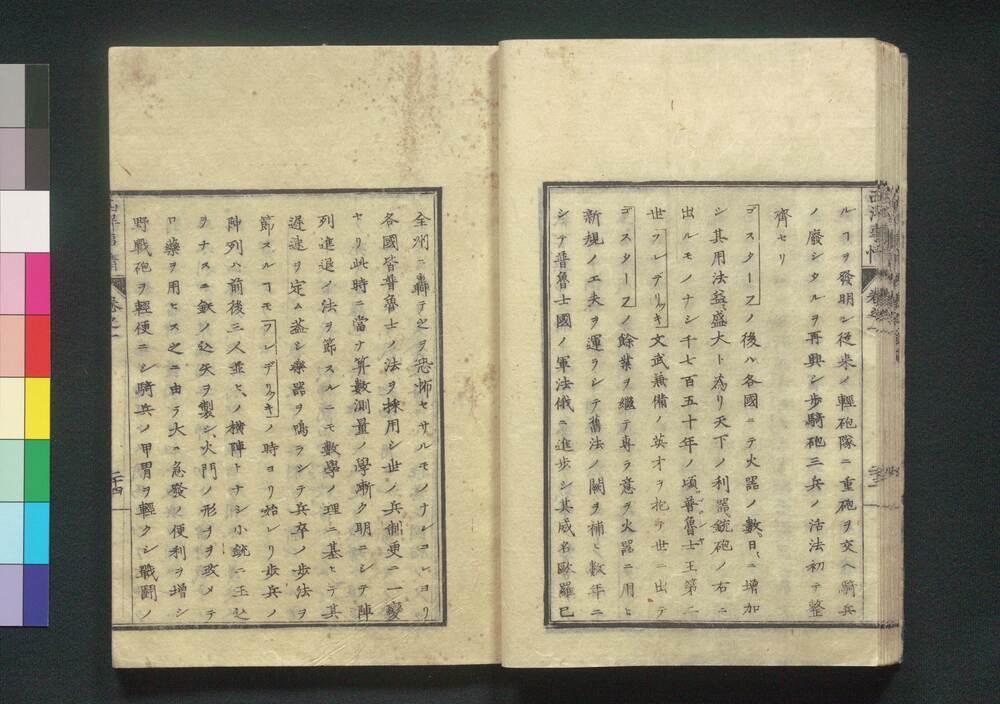 西洋事情 巻之一
ルヿヲ發明シ従来ノ輕砲隊ニ重砲ヲ交ヘ騎兵
ノ廢シタルヲ再興シ歩騎砲三兵ノ活法初テ整
齊セリ
ゴスターフノ後ハ各國ニテ火器ノ數日ニ増加
シ其用法益盛大ト為リ天下ノ利器銃砲ノ右ニ
出ルモノナシ千七百五十年ノ頃普魯士王第二
世フレデリッキ文武兼備ノ英才ヲ抱テ世ニ出テ
ゴスターフノ餘業ヲ継テ専ラ意ヲ火器ニ用ヒ
新規ノ工夫ヲ運ラシテ舊法ノ闕ヲ補ヒ數年ニ
シテ普魯士國ノ軍法俄ニ進歩シ其威名歐羅巴
全洲ニ轟テ之ヲ恐怖セサルモノナシコレヨリ
各國皆普魯士ノ法ヲ採用シ世ノ兵制更ニ一變
セリ此時ニ當テ算數測量ノ學漸ク明ニシテ陣
列進退ノ法ヲ節スルニモ數學ノ理ニ基ヒテ其
遅速ヲ定ム蓋シ樂器ヲ鳴ラシテ兵卒ノ歩法ヲ
節スルヿモフレデリッキノ時ヨリ始レリ歩兵ノ
陣列ハ前後三人並ヒノ横陣トナシ小銃ニ玉込
ヲナスニ鉄ノ込矢ヲ製シ火門ノ形チヲ改メテ
口藥ヲ用ヒス之ニ由テ大ニ急發ノ便利ヲ増シ
野戰砲ヲ輕便ニシ騎兵ノ甲冑ヲ輕クシ戰鬪ノ
西洋事情 巻之一 二十四